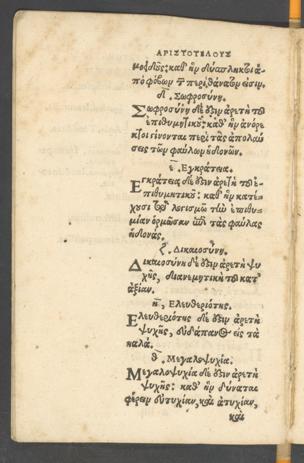 ΑΡΙΣΤΟΤΕΛΟΥΣ
μοειδοῦς: καθ' ἣν δυσπληκτοι ἀ-
πὸ φόβων τ̃ περὶ θάνατον εἰσιν.
Σωφροσύνη.
Σωφροσύνη δέ ὅξιν ἀρετὴ τοῦ
ἐπιθυμητικοῦ: καθ' ἣν ἀνόρε
κτοι γίνονται περὶ τὰς ἀπολαύ
σεις τῶν φαύλων ἡδονῶν.
ϛ. Εγκράτεια.
Εγκράτεια δέ ὅξιν ἀρετὴ τοῦ ἐ-
πιθυμητικοῦ: καθ' ἣν κατέ-
χουσι τῷ λογισμῷ τὴν ἐπιθυ-
μίαν ὁρμῶσαν ἐπὶ τὰς φαύλας
ἡδονάς.
ζ. Δικαιοσύνη.
Δικαιοσύνη δέ ὅξιν ἀρετὴ ψυ
χῆς, διανεμητικὴ τοῦ κατ'
ἀξίαν.
η. Ελευθεριότης.
Ελευθεριότης δέ ὅξιν ἀρετὴ
ψυχῆς, εὐδάπανος εἰς τὰ
καλά.
θ. Μεγαλοψυχία.
Μεγαλοψυχία δέ ὅξιν ἀρετὴ
ψυχῆς: καθ' ἣν δύναται
φέρειν εὐτυχίαν, καὶ ἀτυχίαν,
καὶ